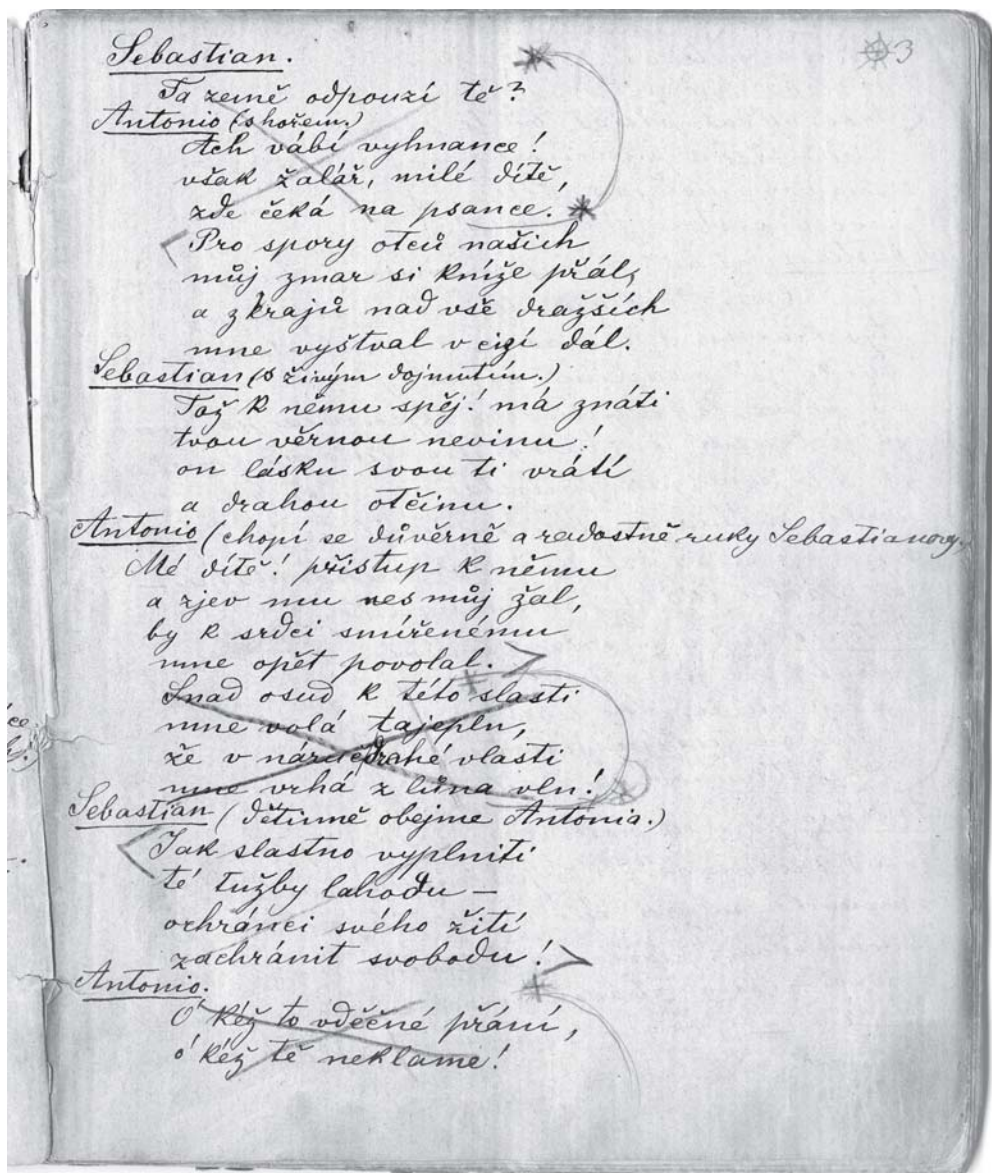 3
Sebastian.
Ta země odpouzí tě?
Antonio (s hořem.)
Ach vábí vyhnance!
však žalář, milé dítě,
zde čeká na psance.
Pro spory otců našich
můj zmar si kníže přál,
a z krajů nad vše dražších
mne vyštval v cizí dál.
Sebastian (s živým dojmutím.)
Tož k němu spěj! má znáti
tvou věrnou nevinu!
on lásku svou ti vrátí
a drahou otčinu.
Antonio (chopí se důvěrně a radostně ruky Sebastianovy.
Mé dítě! přistup k němu
a zjev mu nes můj žal,
by k srdci smířenému
mne opět povolal.
Snad osud k této slasti
mne volá tajepln,
že v náruč drahé vlasti
mne vrhá z lůna vln!
Sebastian (dětinně obejme Antonia.)
Jak slastno vyplniti
té tužby lahodu –
ochránci svého žití
zachránit svobodu!
Antonio.
Ó kéž to vděčné přání,
ó kéž tě neklame!